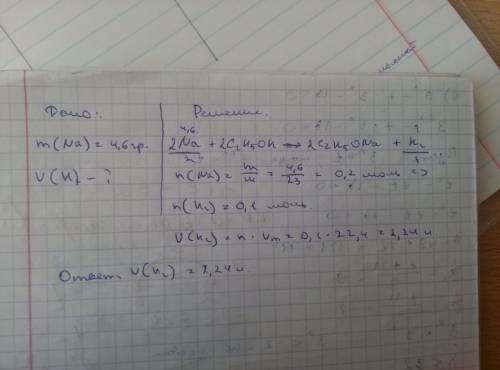 Дано:
Решение.
m(Na) = 4,6 гр.
V(H) - ?
4,6
2Na + 2C₂H₅OH => 2C₂H₅ONa + H₂
2 1
n(Na) = m/M = 4,6/23 = 0,2 моль =>
n(H₂) = 0,1 моль.
V(H₂) = n · Vm = 0,1 · 22,4 = 2,24 л
Ответ: V(H₂) = 2,24 л